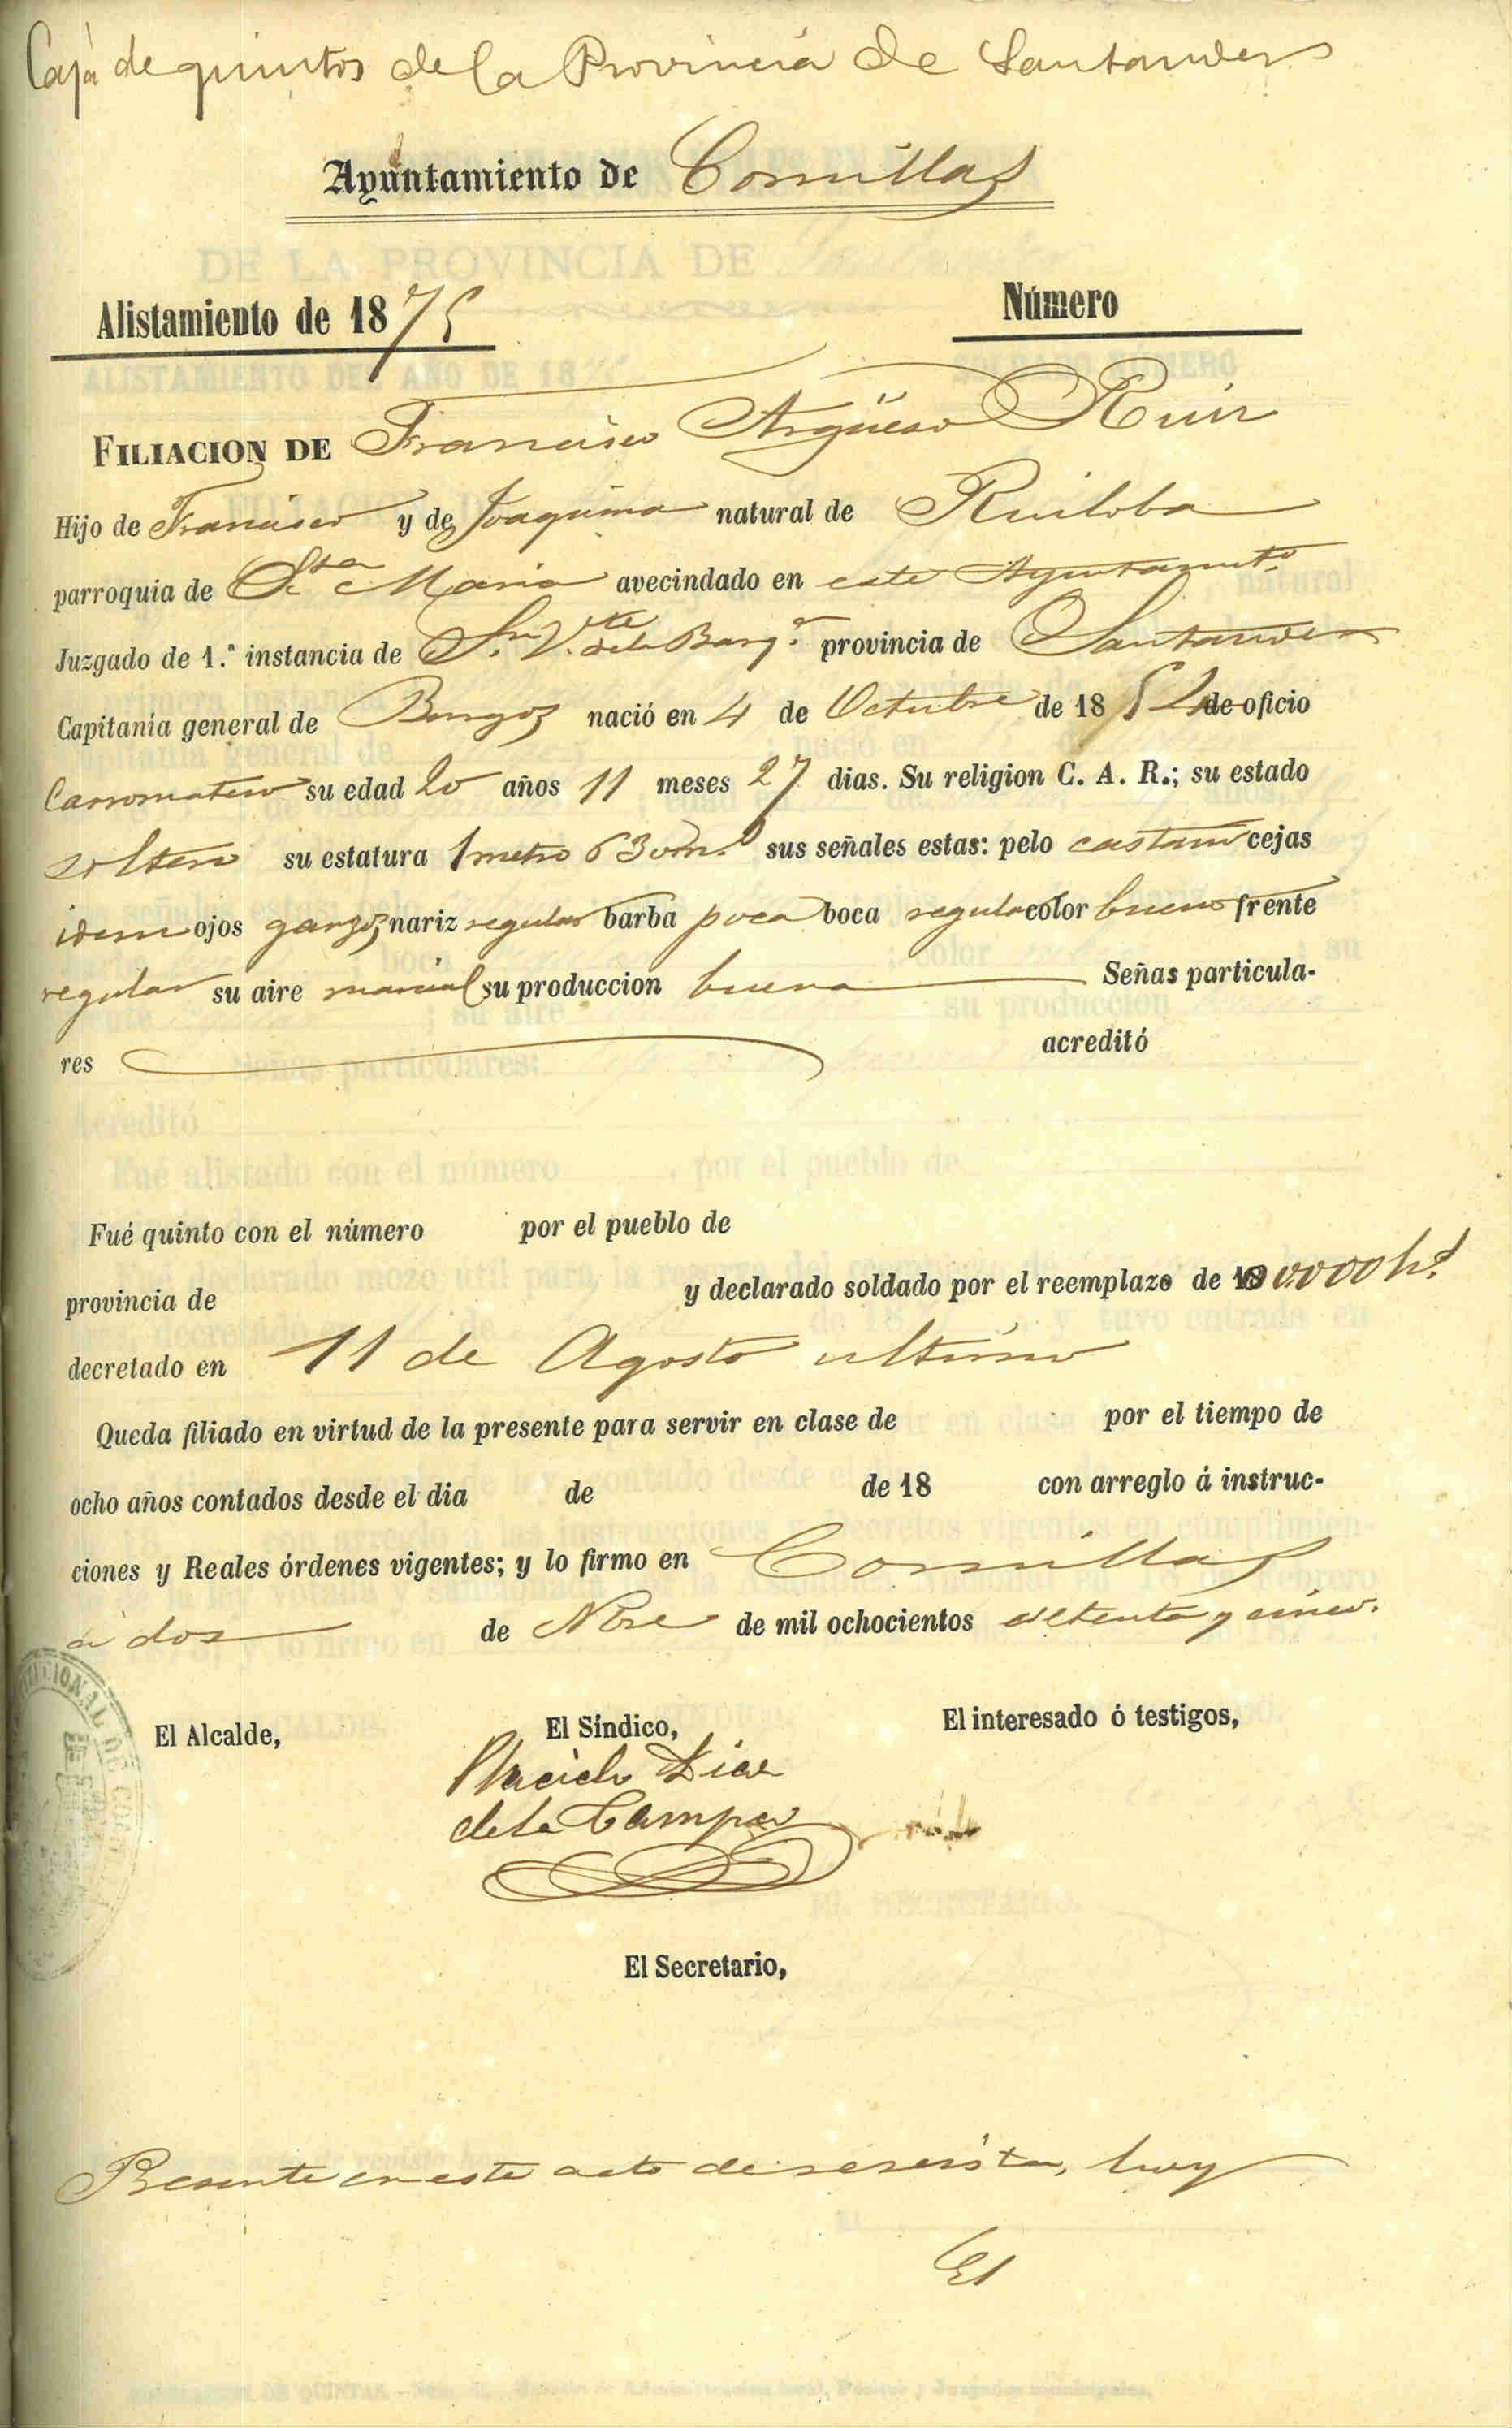 Caja de quintos de la Provincia de Santander
Ayuntamiento de Comillas
Alistamiento de 1875 Número
FILIACION DE Francisco Argüeso Ruiz
Hijo de Francisco y de Joaquina natural de Ruiloba
parroquia de Sta Maria avecindado en este Ayuntamto
Juzgado de 1.ª instancia de Sn Vte de la Barqa provincia de Santander
Capitanía general de Burgos nació en 4 de Octubre de 1854 de oficio
Carromatero su edad 20 años 11 meses 27 dias. Su religion C. A. R.; su estado
soltero su estatura 1 metro 630 m.s sus señales estas: pelo castaño cejas
idem ojos garzos nariz regular barba poca boca regular color bueno frente
regular su aire marcial su produccion buena Señas particula-
res acreditó
Fué quinto con el número por el pueblo de
provincia de y declarado soldado por el reemplazo de 100000 hs
decretado en 11 de Agosto ultimo
Queda filiado en virtud de la presente para servir en clase de por el tiempo de
ocho años contados desde el dia de de 18 con arreglo á instruc-
ciones y Reales órdenes vigentes; y lo firmo en Comillas
a dos de Nbre de mil ochocientos setenta y cinco.
El Alcalde, El Síndico, El interesado ó testigos,
Placido Diaz
de la Campa
El Secretario,
Presente en este acto de revista, hoy
El